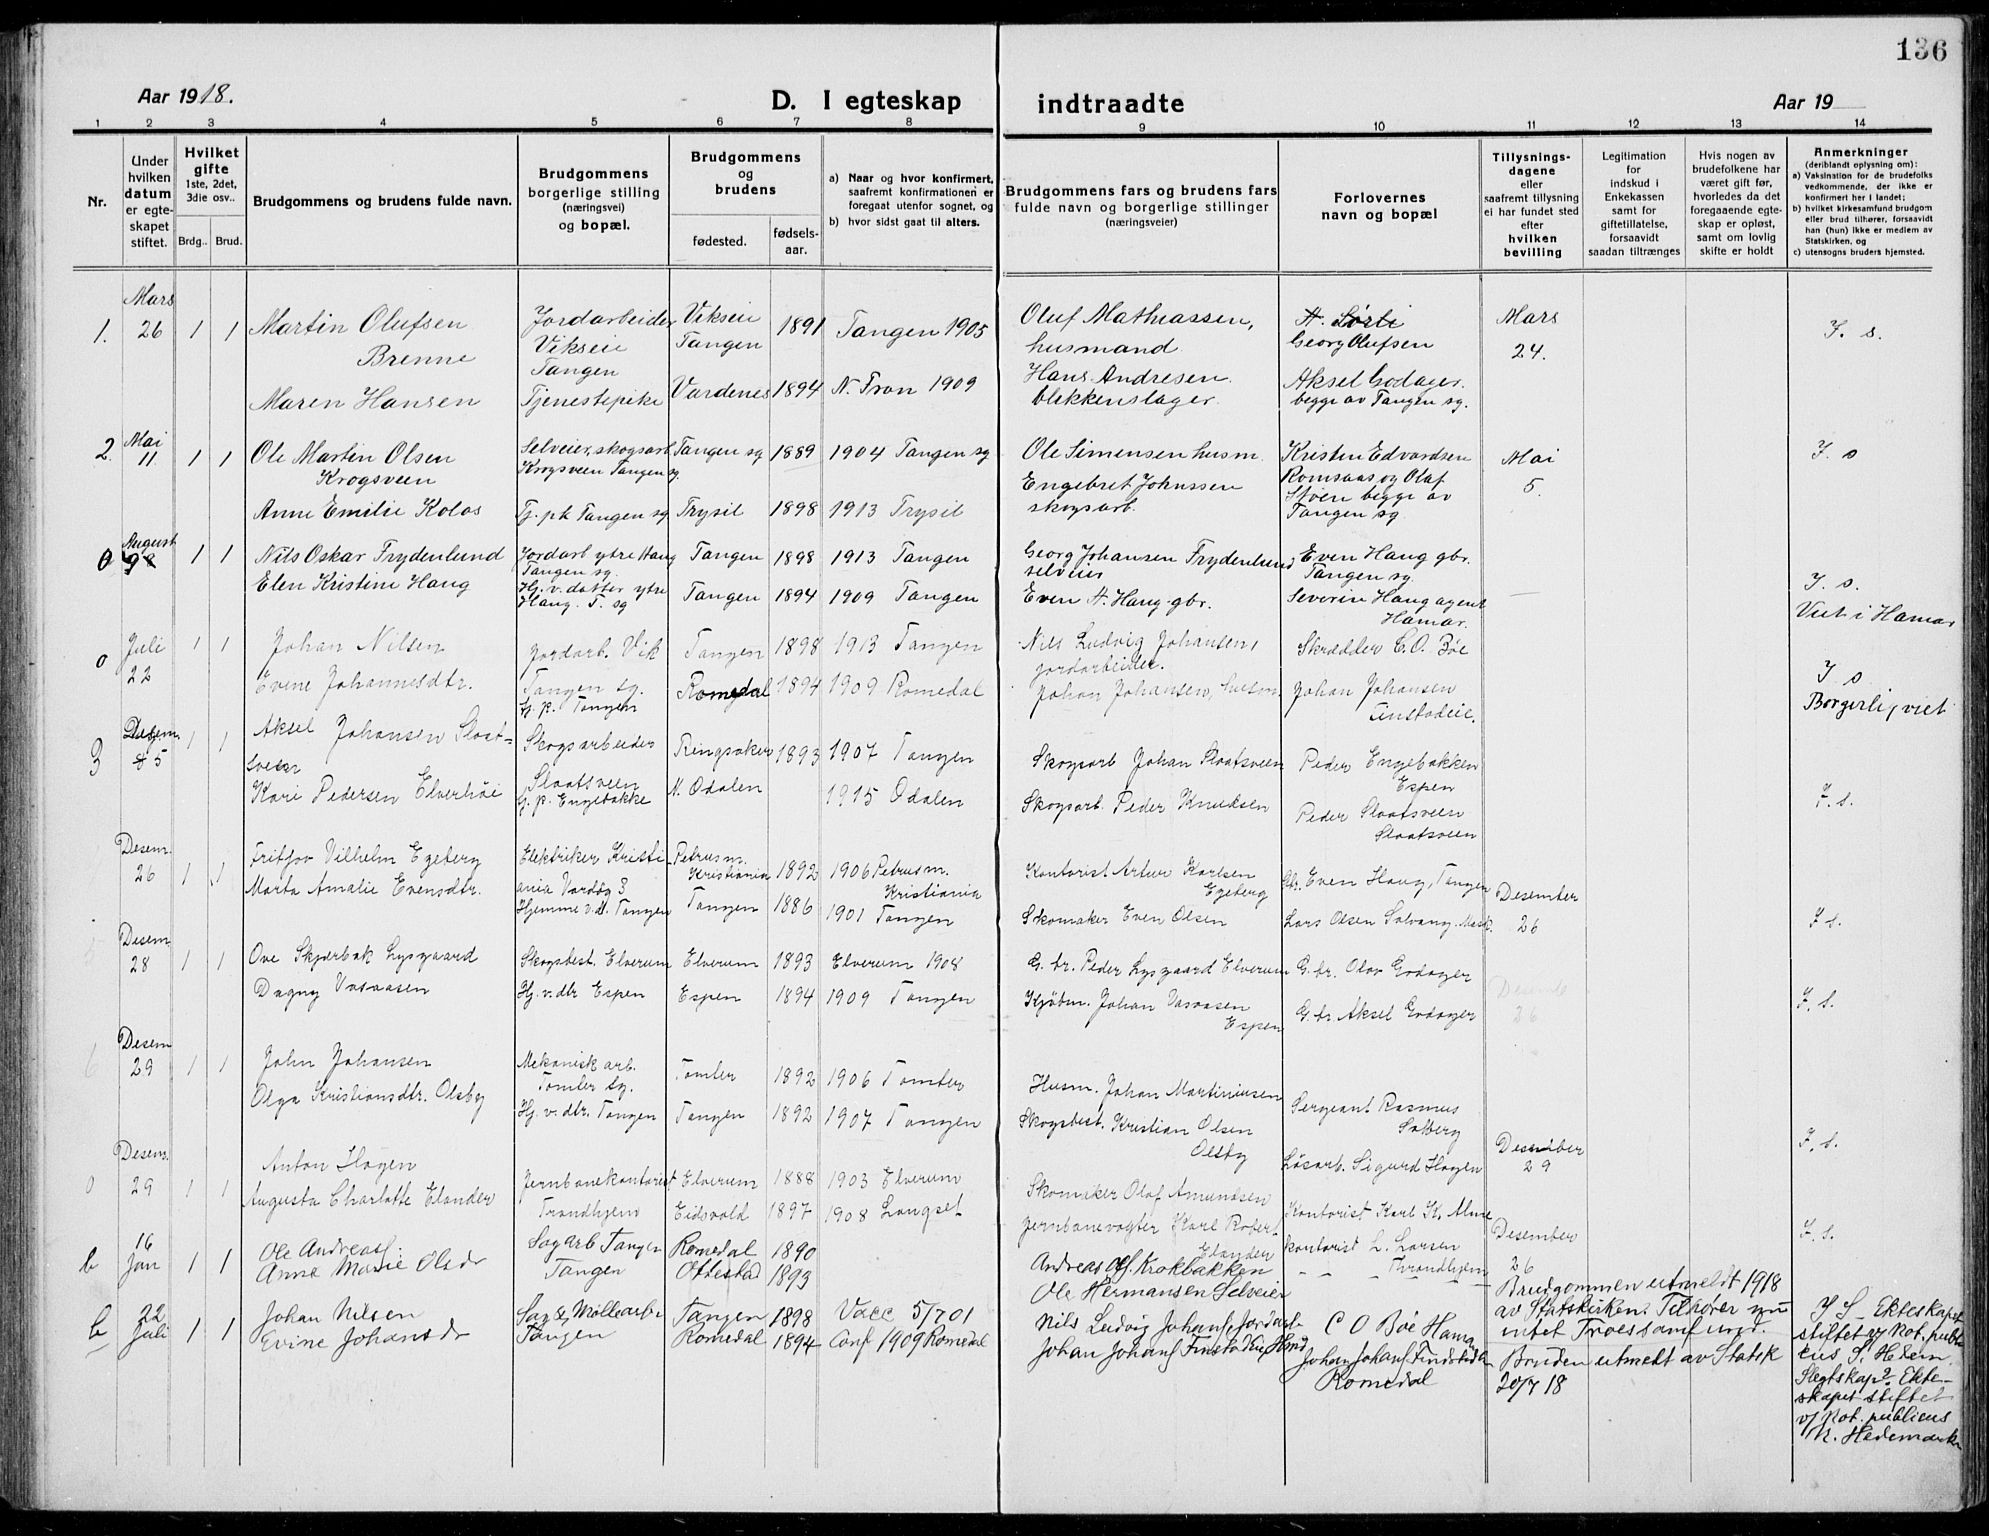 136
Aar 1918.
D. I egteskap indtraadte
Aar 19
1 2 3 4 5 6 7 8 9 10 11 12 13 14
Nr.
Under hvilken datum er egteskapet stiftet.
Hvilket gifte
1ste, 2det, 3die osv..
Brdg..
Brud.
Brudgommens og brudens fulde navn.
Brudgommens borgerlige stilling (næringsvei) og bopæl.
Brudgommens og brudens
fødested.
fødselsaar.
a) Naar og hvor konfirmert, saafremt konfirmationen er foregaat utenfor sognet, og
b) hvor sidst gaat til alters.
Brudgommens fars og brudens fars fulde navn og borgerlige stillinger (næringsveier)
Forlovernes navn og bopæl
Tillysningsdagene eller saafremt tillysning ei har fundet sted efter hvilken bevilling
Legitimation for indskud i Enkekassen samt for giftetillatelse, forsaavidt saadan tiltrænges
Hvis nogen av brudefolkene har været gift før, hvorledes da det foregaaende egteskap er opløst, samt om lovlig skifte er holdt
Anmerkninger
(deriblandt oplysning om):
a) Vaksination for de brudefolks vedkommende, der ikke er konfirmert her i landet;
b) hvilket kirkesamfund brudgom eller brud tilhører, forsaavidt han (hun) ikke er medlem av Statskirken, og
c) utensogns bruders hjemsted.
1. Mars 26 1 1 Martin Olufsen Brenne
Jordarbeider Vikseie Tangen
Vikseie Tangen 1891 Tangen 1905
Oluf Mathiassen, husmand
A. Sørli
Georg Olufsen
Mars 24.
I. s.
Maren Hansen
Tjenestepike Vardenes 1894 N. Fron 1909
Hans Andresen blikkenslager
Aksel Godager. begge av Tangen sg.
2. Mai 11 1 1 Ole Martin Olsen Krogsveen
Selveier, skogsarb. Krogsveen Tangen sg.
Tangen sg 1889 1904 Tangen sg
Ole Simensen husm.
Kristen Edvardsen Romsaas og Olaf Støen begge av Tangen sg.
Mai 5.
I. s
Anne Emilie Kolos
Tj. pk Tangen sg. Trysil 1898 1913 Trysil
Engebret Johnssen skogsarb.
0 August 1 1 Nils Oskar Frydenlund
Jordarb ytre Haug Tangen sg.
Tangen 1898 1913 Tangen
Georg Johansen Frydenlund selveier
Even Haug gbr. Tangen sg.
Elen Kristine Haug
Hj. v. datter ytre Haug. T. sg
Tangen 1894 1909 Tangen
Even A. Haug gbr.
Severin Haug agent Hamar.
I. s.
Viet i Hamar
0 Juli 22 1 1 Johan Nilsen
Jordarb. Vik Tangen sg.
Tangen 1898 1913 Tangen
Nils Ludvig Johansen, jordarbeider.
Skrædder C. O. Bøe
Evine Johannesdtr.
Tj. p. Tangen Romedal 1894 1909 Romedal
Johan Johansen, husm.
Johan Johansen Finstadeie.
I. s
Borgerlig viet
3 Desem. 5 1 1 Aksel Johansen Slaatsveen
Skogsarbeider Slaatsveen
Ringsaker 1893 1907 Tangen
Skogsarb Johan Slaatsveen
Peder Engebakken Espen
Kari Pedersen Elverhöi
Tj. p. Engebakke N. Odalen 1915 Odalen
Skogsarb. Peder Knudsen
Peder Slaatsveen Slaatsveen
I. s.
Desem. 26 1 1 Fritjov Vilhelm Egeberg
Elektriker Kristiania
Petrusm. Kristiania 1892 1906 Petrusm. Kristiania
Kontorist Artur Karlsen Egeberg
Gbr. Even Haug, Tangen
Desember 26
Marta Amalie Evensdtr.
Hjemme v. d. Tangen Tangen 1886 1901 Tangen
Skomaker Even Olsen
Lars Olsen Solvang,
I. s.
Desem. 28 1 1 Ove Skjærbak Lysgaard
Skogsbest. Elverum Elverum 1893 Elverum 1908
G. br. Peder Lysgaard Elverum
G. br. Olav Godager
Dagny Vasaasen
Hj. v. dtr Espen Espen 1894 1909 Tangen
Kjøbm. Johan Vasaasen Espen
G. br. Aksel Godager
Desemb 26
I. s.
6 Desem 29 1 1 John Johansen
Mekanisk arb. Tomter sg.
Tomter 1892 1906 Tomter
Husm. Johan Martiniusen
Sergeant Rasmus Solberg
Olga Kristiansdtr. Olsby
Hj. v. dtr. Tangen Tangen 1892 1907 Tangen
Skogsbest. Kristian Olsen Olsby
Løsarb. Sigurd Hagen
Desember 29
I. s.
0 Desem. 29 1 1 Anton Hagen
Jernbanekontorist Trondhjem
Elverum 1888 1903 Elverum
Skomaker Olaf Amundsen
Kontorist Karl K. Alme
Augusta Charlotte Elander
Eidsvold 1897 1908 Langset
Jernbanevogter Karl Robert Elander
Kontorist L. Larsen Trondhjem
Desember 26
I. s.
b 16 Jan 1 1 Ole Andreasf
Sagarb Tangen Romedal 1890
Andreas Olf. Krokbakken
Anne Marie Olsdr
Tangen Ottestad 1893
Ole Hermansen Selveier
b 22 Juli 1 1 Johan Nilsen
Sag & Møllearb Tangen 1898 Vacc 5/7 01
Nils Ludvig Johansf. Jordarb
C O Bøe Hamar
Evine Johansdr
Tangen Romedal 1894 Conf 1909 Romedal
Johan Johansf Finstadeie Hsmd
Johan Johansf. Findstadeie Romedal
Brudgommen utmeldt 1918 av Statskirken. Tilhører nu intet Troessamfund.
Bruden utmeldt av Statsk 20/7 18
I S. Ekteskapet stiftet v/ Not. publicus S. Hedem.
Slegtskap? Ekteskapet stiftet v/ Not. publicus N. Hedemarken